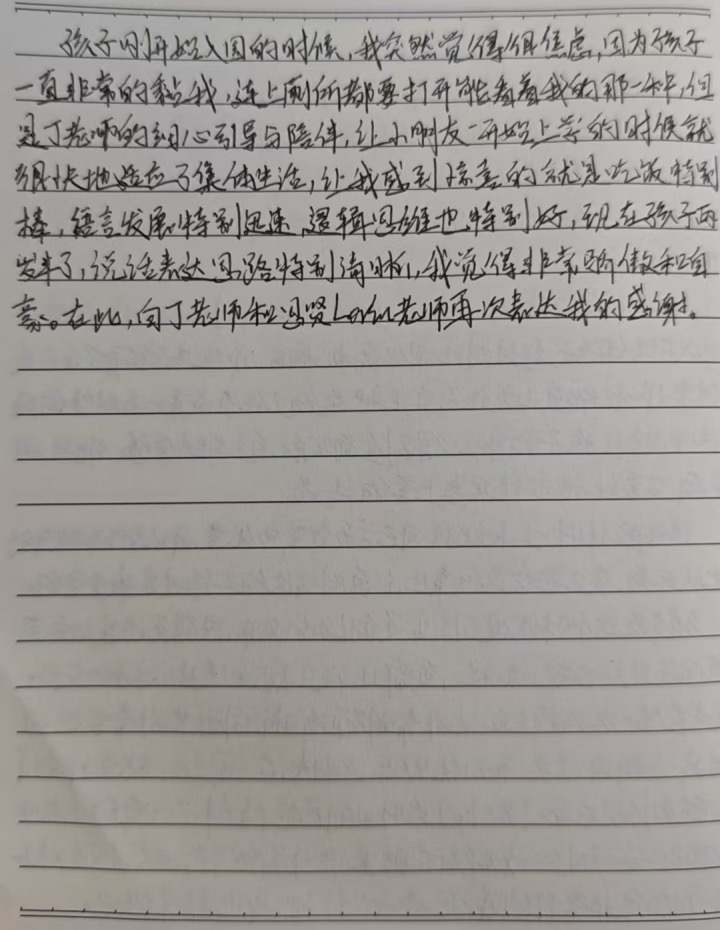 孩子刚开始入园的时候,我突然觉得很焦虑,因为孩子
一直非常的黏我,连上厕所都要打开能看着我的那一种,但
是丁老师的细心引导与陪伴,让小朋友一开始上学的时候就
很快地适应了集体生活,让我感到惊喜的就是吃饭特别
棒,语言发展特别迅速,逻辑思维也特别好,现在孩子两
岁半了,说话表达思路特别清晰,我觉得非常骄傲和自
豪。在此,向丁老师和冯贤 老师再次表达我的感谢。